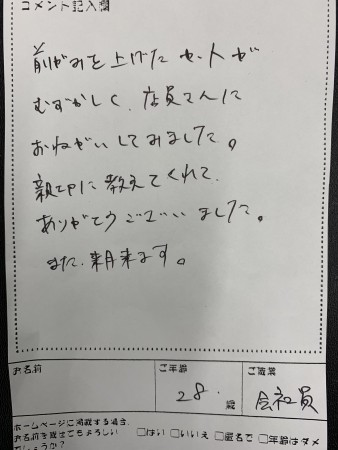 コメント記入欄
前がみを上げたセットが
むずかしく、店員さんに
おねがいしてみました。
親切に教えてくれて
ありがとうございました。
また、来月来ます。
お名前
ご年齢
ご職業
28.
歳
会社員
ホームページに掲載する場合、
お名前を載せてもよろしい
でしょうか？
□はい □いいえ □匿名で □年齢はダメ